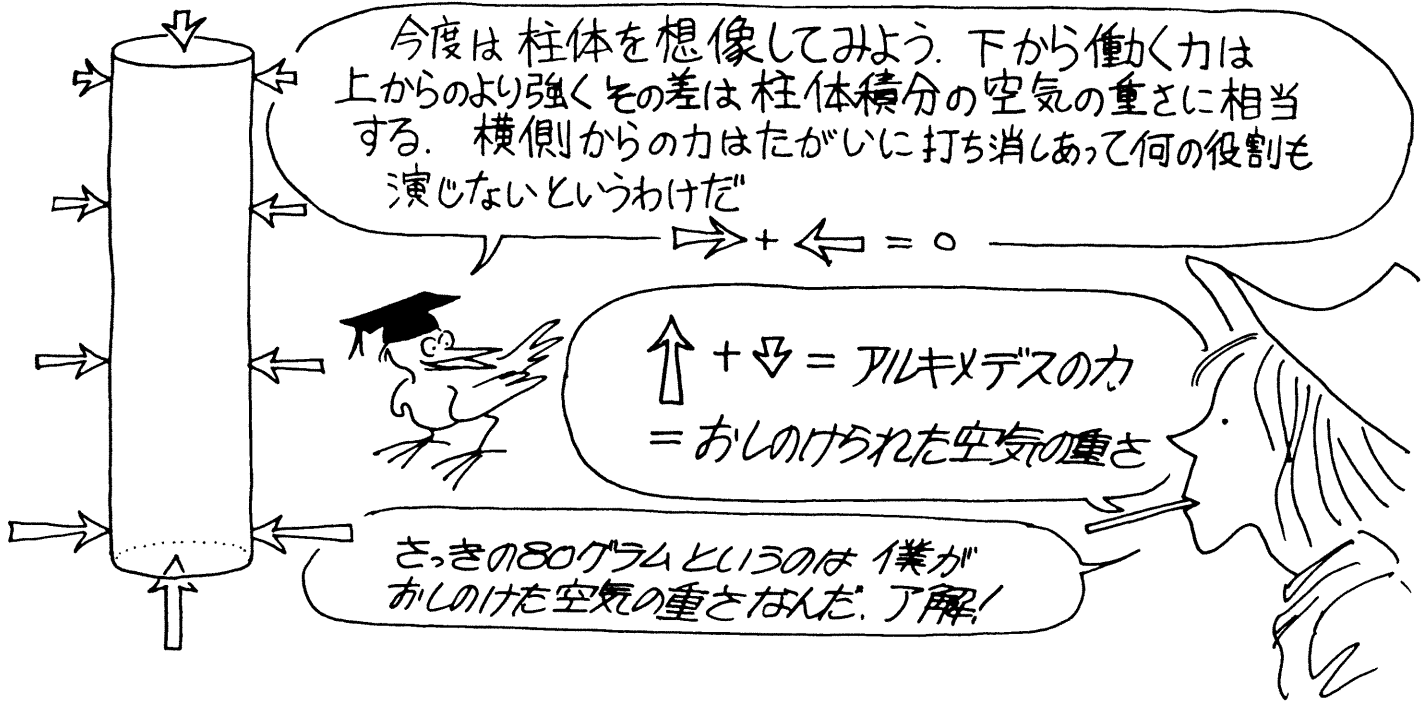 今度は柱体を想像してみよう. 下から働く力は
上からのより強くその差は柱体積分の空気の重さに相当
する. 横側からの力はたがいに打ち消しあって何の役割も
演じないというわけだ
+ = 0
+ = アルキメデスの力
= おしのけられた空気の重さ
さっきの80グラムというのは 僕が
おしのけた空気の重さなんだ. 了解!